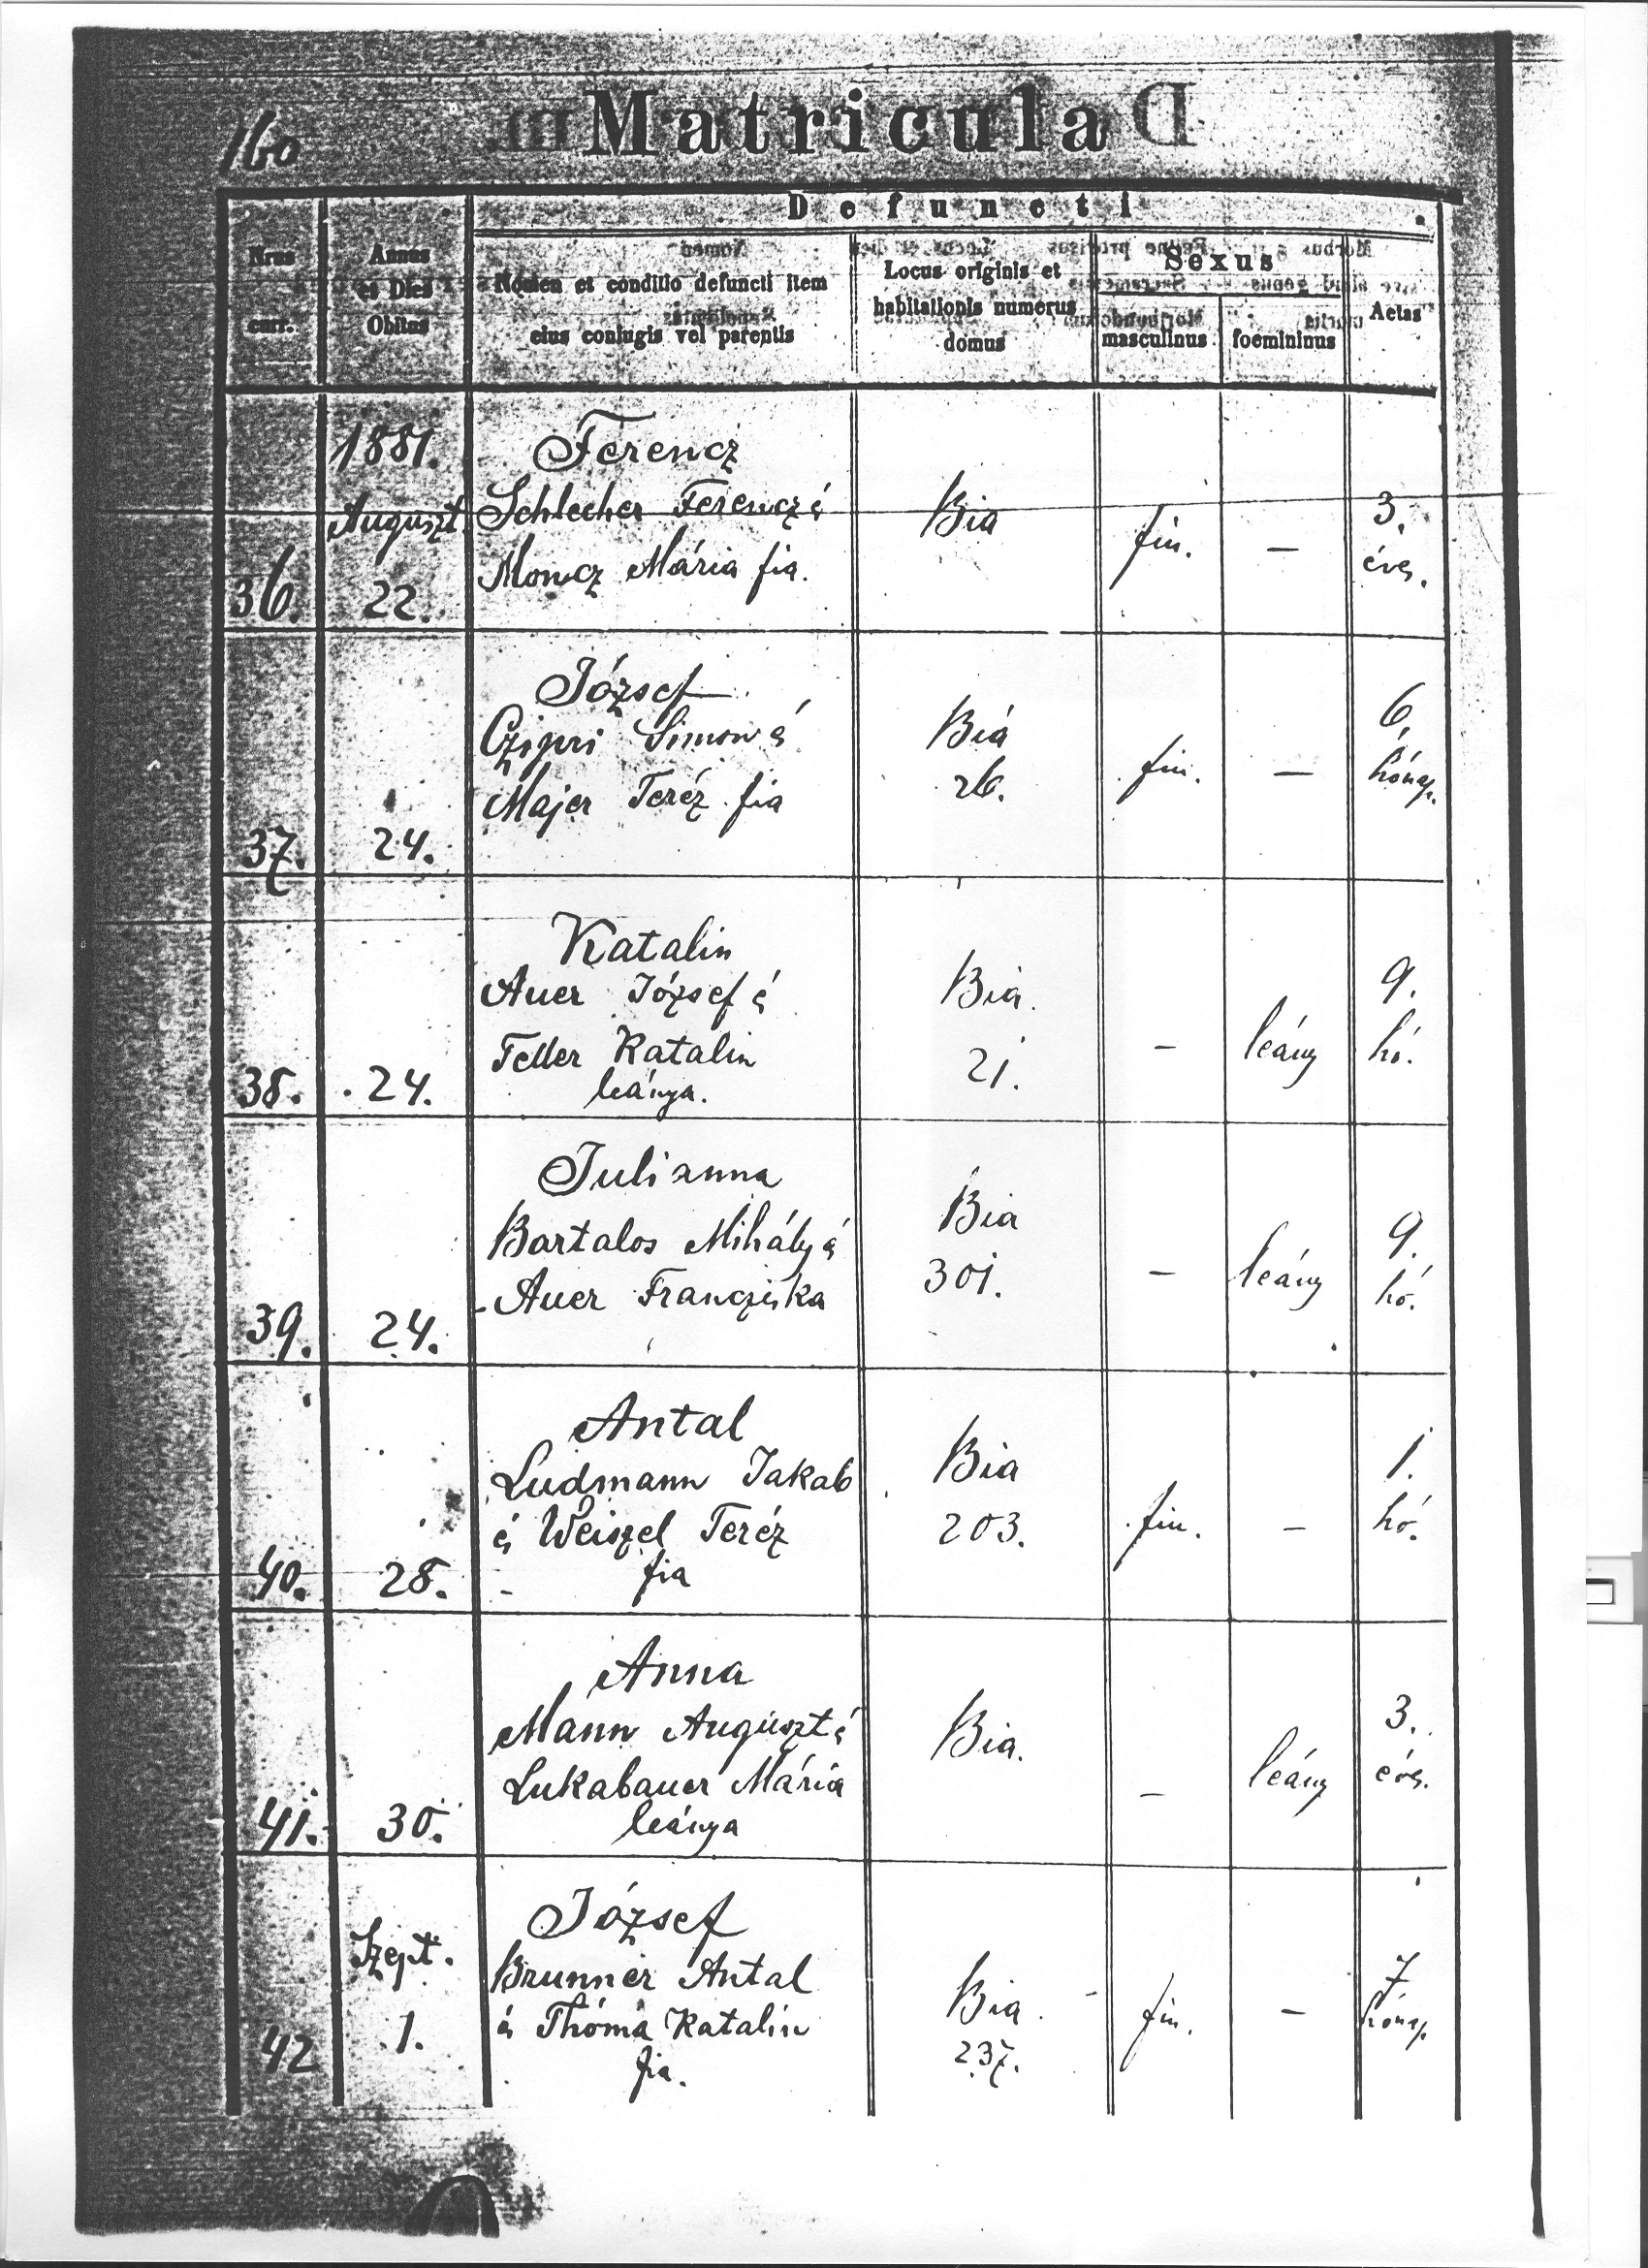 160
Matricula
Defuncti
Nrus curr.
Annus et Dies Obitus
Nomen et conditio defuncti item eius coniugis vel parentis
Locus originis et habitationis numerus domus
Sexus
masculinus
foemininus
Aetas
1881.
Auguszt.
36.
22.
Ferencz
Schlecher Ferencz é
Moncz Mária fia.
Bia
fiu.
—
3.
éves.
37.
24.
József
Czigri Simon é
Majer Teréz fia
Bia
26.
fiu.
—
6
hónap.
38.
24.
Katalin
Auer József é
Feller Katalin
leánya.
Bia.
21.
—
leány
9.
hó.
39.
24.
Julianna
Bartalos Mihály é
Auer Francziska
Bia
301.
—
leány
9.
hó.
40.
28.
Antal
Ludmann Jakab
é Weiszel Teréz
fia
Bia
203.
fiu.
—
1.
hó.
41.
30.
Anna
Mann Auguszt é
Lukabauer Mária
leánya
Bia.
—
leány
3.
éves.
42
Szept.
1.
József
Brunner Antal
é Thóma Katalin
fia.
Bia
237.
fiu.
—
7
hónap